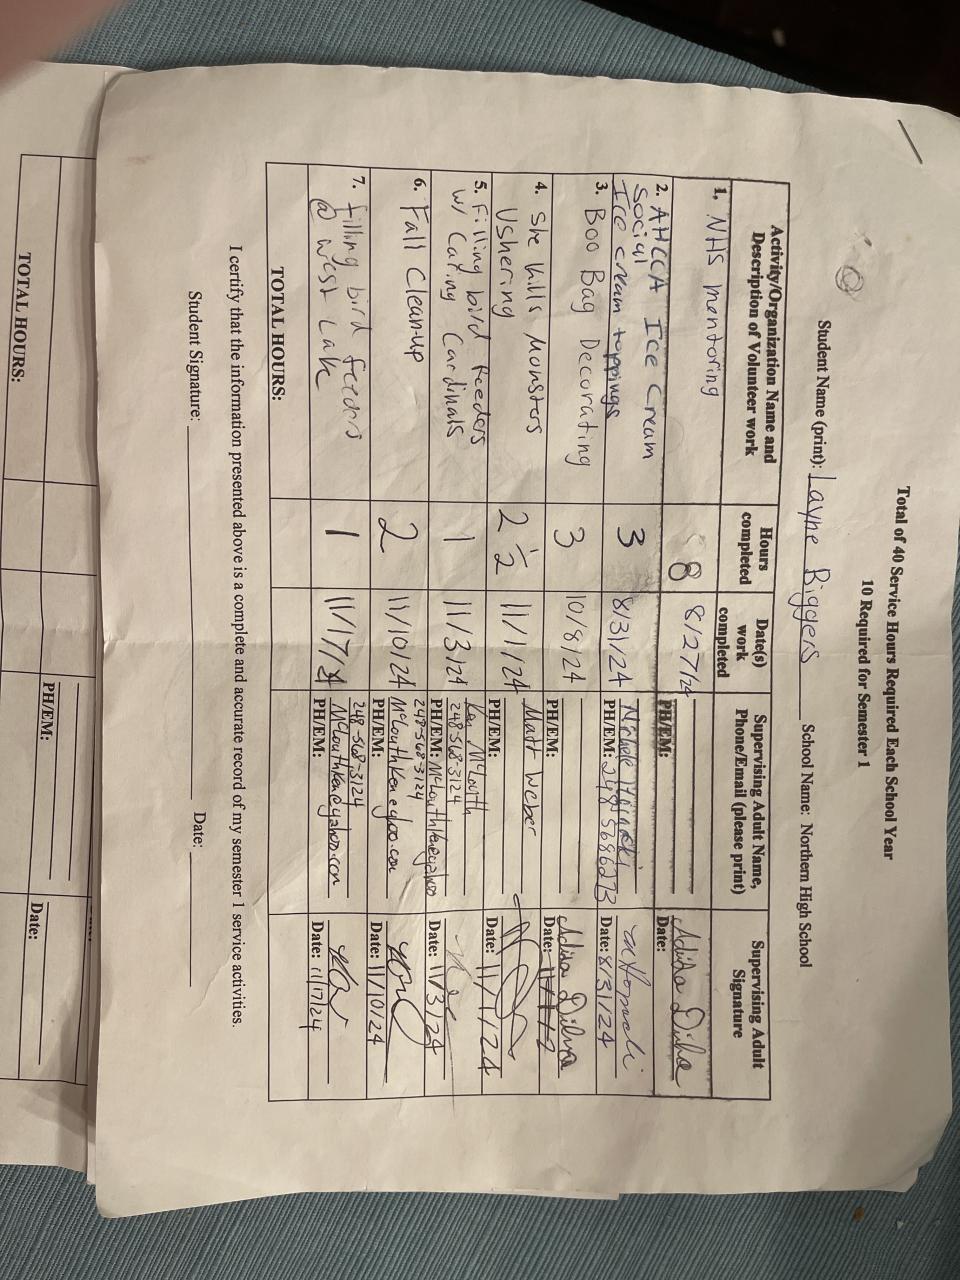 Total of 40 Service Hours Required Each School Year
10 Required for Semester 1
Student Name (print): Layne Biggers School Name: Northern High School
Activity/Organization Name and
Description of Volunteer work
Hours
completed
Date(s)
work
completed
Supervising Adult Name,
Phone/Email (please print)
Supervising Adult
Signature
1. NHS mentoring
8
8/27/24
PH/EM:
Date:
2. AHCCA Ice Cream
Social
Ice cream toppings
3
8/31/24
Nichole
PH/EM: 2485686273
Date: 8/31/24
3. Boo Bag Decorating
3
10/8/24
PH/EM:
Date:
4. She kills Monsters
Ushering
2 1/2
11/1/24
Matt Weber
PH/EM:
Date: 11/1/24
5. Filling bird feeders
w/ Caring Cardinals
1
11/3/24
Ken McLouth
248-568-3124
PH/EM: McLouthken@yahoo
Date: 11/3/24
6. Fall Clean-up
2
11/10/24
248-568-3124
PH/EM:
Date: 11/10/24
7. filling bird feeders
@ west Lake
1
11/17/24
248-568-3124
McLouthken@yahoo.com
PH/EM:
Date: 11/17/24
TOTAL HOURS:
I certify that the information presented above is a complete and accurate record of my semester 1 service activities.
Student Signature: Date:
PH/EM:
Date:
TOTAL HOURS: